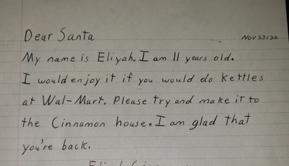 Dear Santa
Nov 23/22
My name is Eliyah. I am 11 years old.
I would enjoy it if you would do kettles
at Wal-Mart. Please try and make it to
the Cinnamon house. I am glad that
you're back.